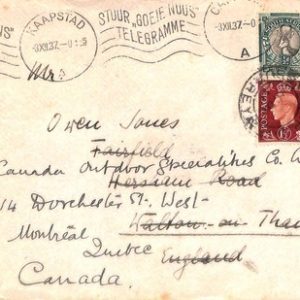 KAAPSTAD
3XII.37.
STUUR „GOEIE NUUS"
TELEGRAMME
3XII.37.
A
Mrs
Owen Jones
Fairfield
Canada Outdoor Specialities Co
Hersham Road
14 Dorchester St. West
Walton-on-Tha
Montréal
Quebec
England
Canada.
POSTAGE